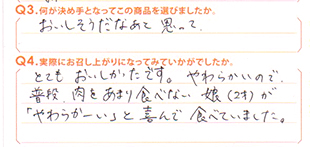 Q3.何が決め手となってこの商品を選びましたか。
おいしそうだなあて 思って
Q4.実際にお召し上がりになってみていかがでしたか。
とても おいしかたです。やわらかいので、
普段、肉をあまり食べない 娘(2才)が
「やわらかーい」と喜んで食べていました。